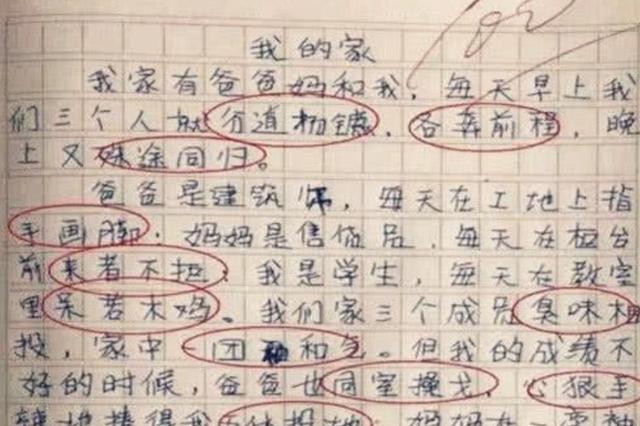 我的家
我家有爸爸妈和我，每天早上我
们三个人就分道杨镳，各奔前程，晚
上又殊途同归。
爸爸是建筑师，每天在工地上指
手画脚；妈妈是信贷员，每天在柜台
前来者不拒；我是学生，每天在教室
里呆若木鸡。我们家三个成员臭味相
投，家中一团和气。但我的成绩不
好的时候，爸爸也同室操戈，心狠手
辣地揍得我五体投地，妈妈在一旁袖